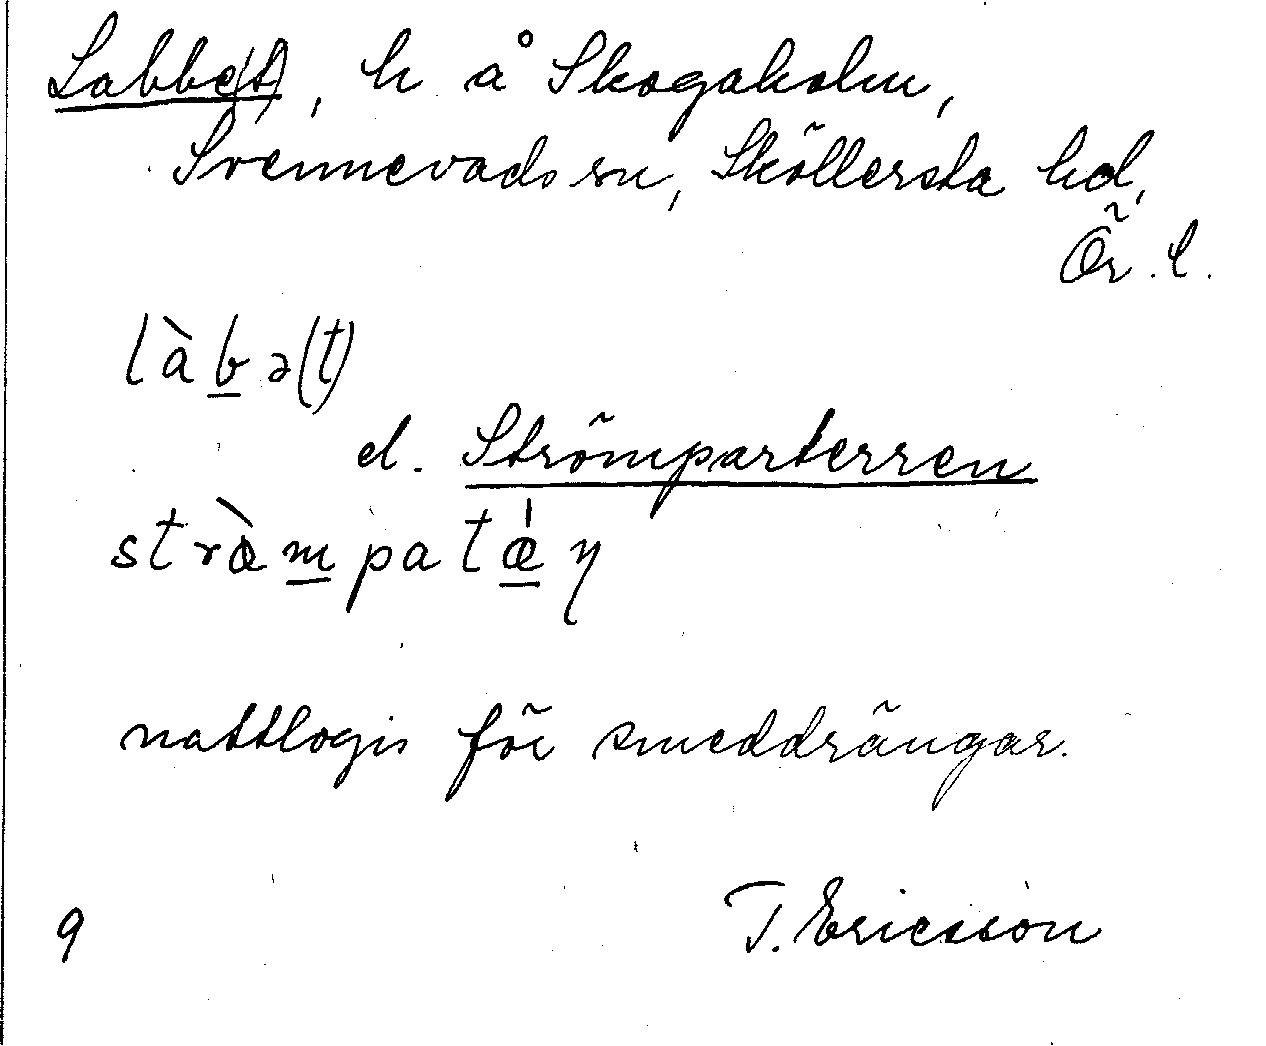 Labbe(t), h å Skogaholm,
Svennevads sn, Sköllersta hd,
Ör. l.
làbə(t)
el. Strömparterren
stræ̀mpatǽn
nattlogis för smeddrängar.
T. Ericsson
9